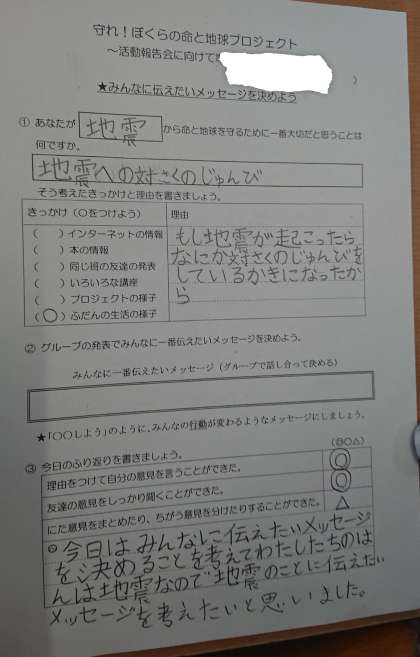 守れ！ぼくらの命と地球プロジェクト
～活動報告会に向けて
）
★みんなに伝えたいメッセージを決めよう
① あなたが 地震 から命と地球を守るために一番大切だと思うことは
何ですか。
地震への対さくのじゅんび
そう考えたきっかけと理由を書きましょう。
きっかけ（〇をつけよう） 理由
（ ）インターネットの情報
（ ）本の情報
（ ）同じ班の友達の発表
（ ）いろいろな講座
（ ）プロジェクトの様子
（〇）ふだんの生活の様子
もし地震が起こったら
なにか対さくのじゅんびを
しているかきになったか
ら
② グループの発表でみんなに一番伝えたいメッセージを決めよう。
みんなに一番伝えたいメッセージ（グループで話し合って決める）
★「〇〇しよう」のように、みんなの行動が変わるようなメッセージにしましょう。
③ 今日のふり返りを書きましょう。 （◎〇△）
理由をつけて自分の意見を言うことができた。 ◎
友達の意見をしっかり聞くことができた。 ◎
にた意見をまとめたり、ちがう意見を分けたりすることができた。 △
今日はみんなに伝えたいメッセージ
を決めることを考えてわたしたちのは
んは地震なので地震のことに伝えたい
メッセージを考えたいと思いました。